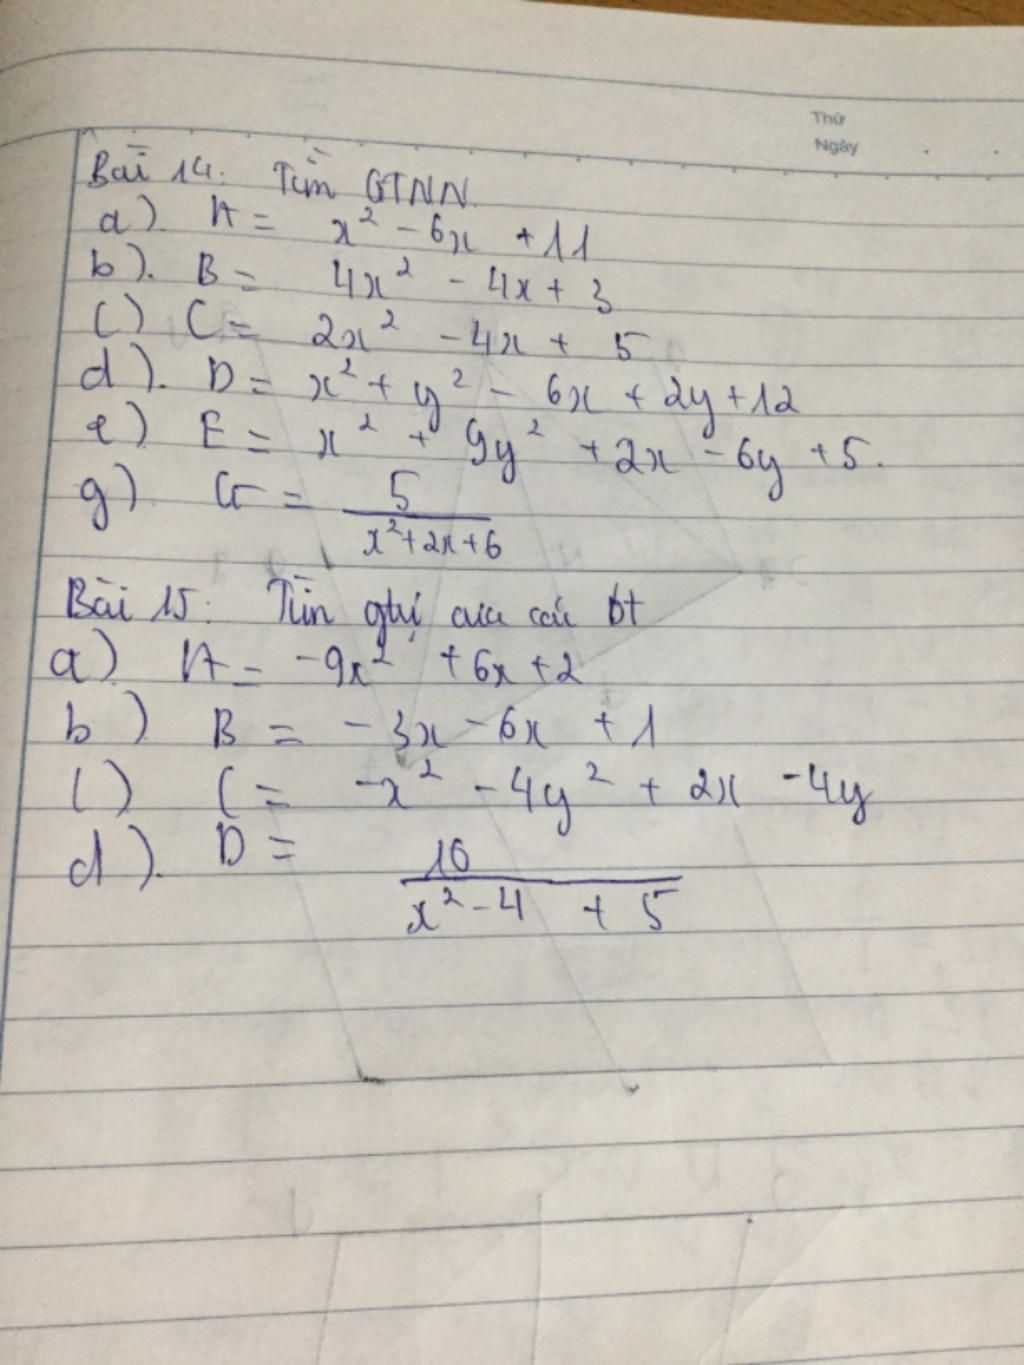 Thứ
Ngày
Bài 14: Tìm GTNN.
a). A = x² - 6x + 11
b). B = 4x² - 4x + 3
c) C = 2x² - 4x + 5
d). D = x² + y² - 6x + 2y + 12
e) E = x² + 9y² + 2x - 6y + 5.
g) G = 5 / x² + 2x + 6
Bài 15: Tìm của các bt
a) A = -9x² + 6x + 2
b) B = -3x - 6x + 1
c) C = -x² - 4y² + 2x - 4y
d). D = 10 / x² - 4 + 5